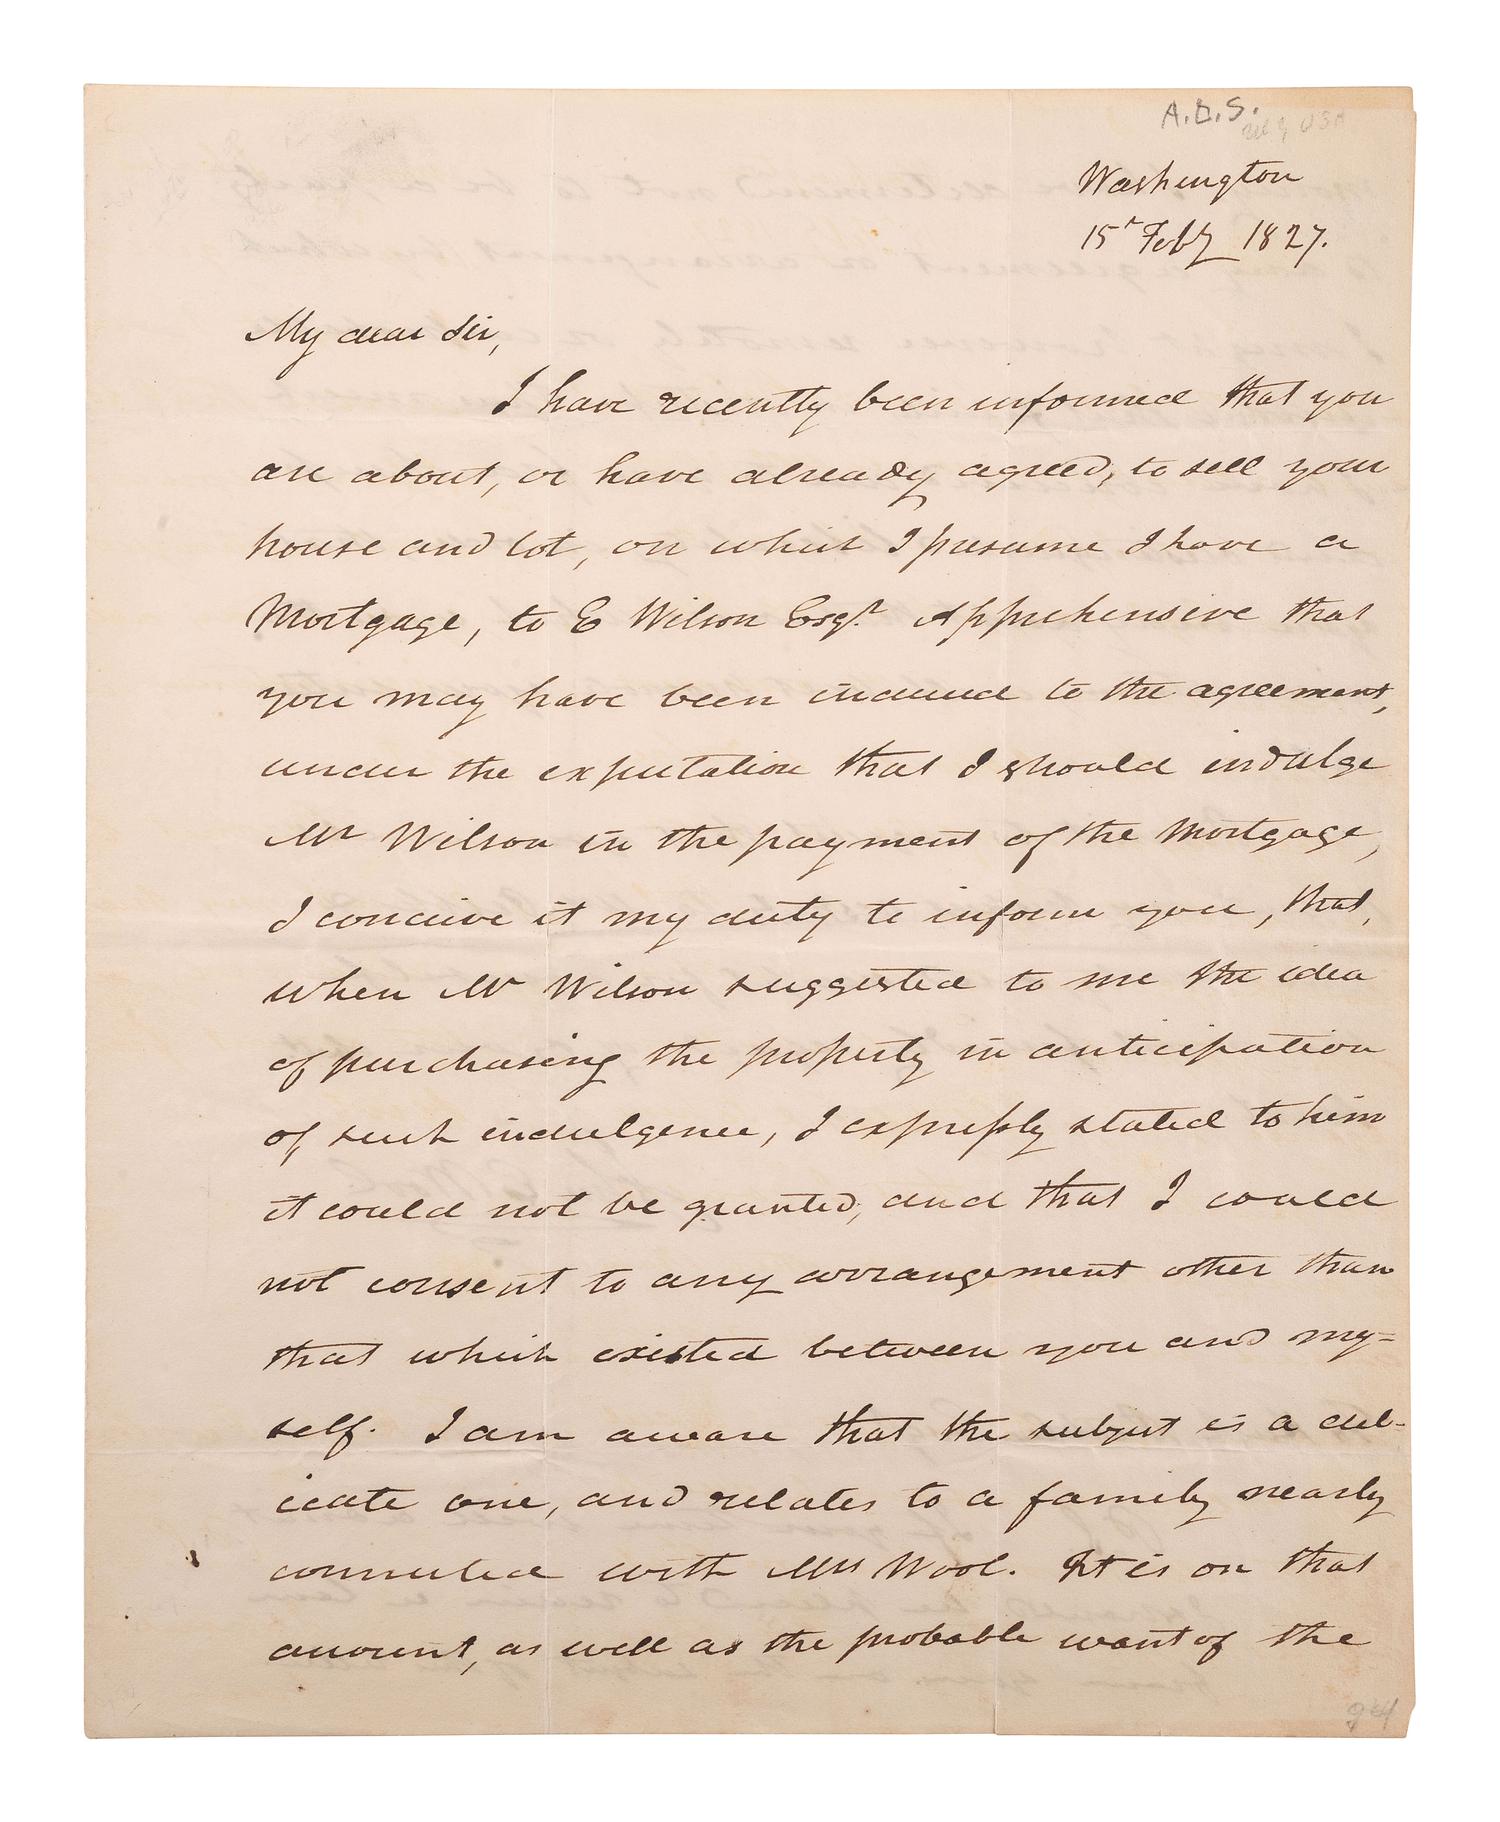 A.L.S.
Washington
15th Feby 1827.
My dear Sir,
I have recently been informed that you
are about, or have already agreed, to sell your
house and lot, on which I presume I have a
Mortgage, to E Wilson Esqr. Apprehensive that
you may have been induced to the agreement,
under the expectation that I should indulge
Mr Wilson in the payment of the Mortgage,
I conceive it my duty to inform you, that,
when Mr Wilson suggested to me the idea
of purchasing the property in anticipation
of such indulgence, I expressly stated to him
it could not be granted, and that I could
not consent to any arrangement other than
that which existed between you and my=
self. I am aware that the subject is a del-
icate one, and relates to a family nearly
connected with Mrs Wool. It is on that
account, as well as the probable want of the